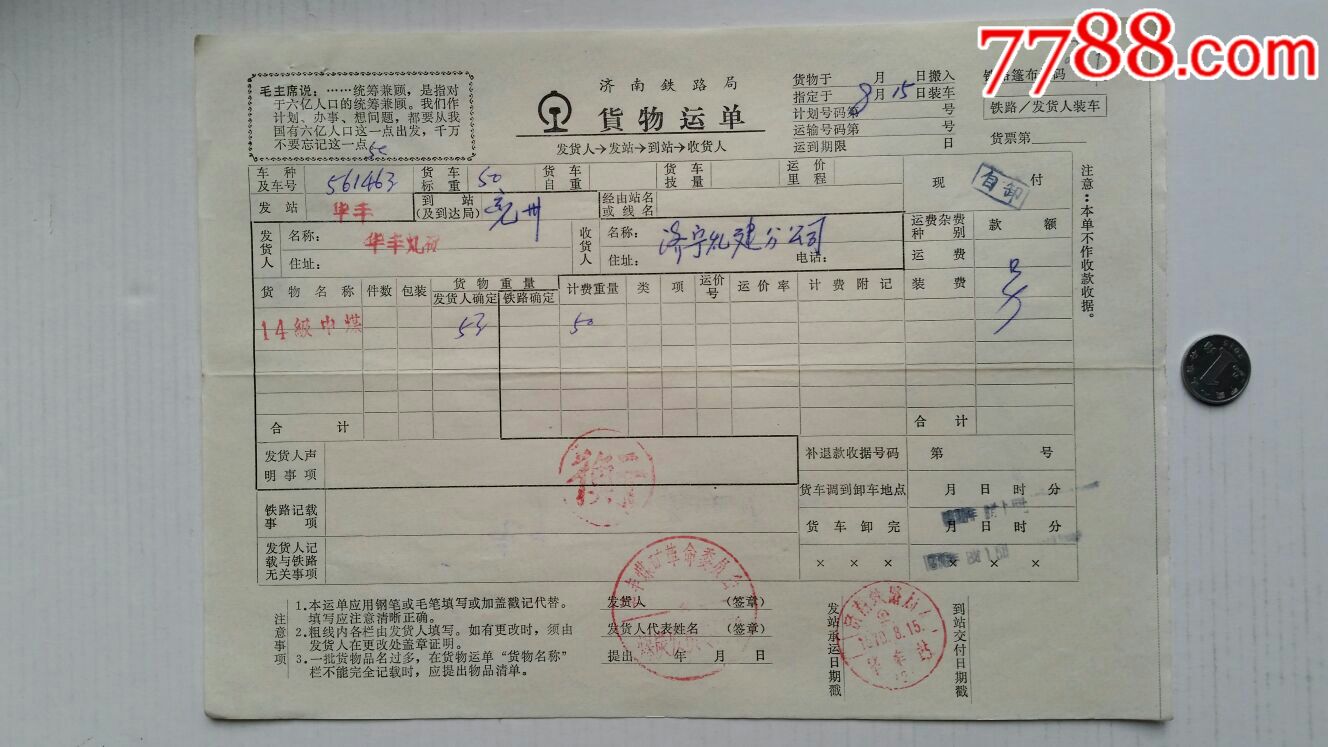 7788.com
毛主席说：……统筹兼顾，是指对
于六亿人口的统筹兼顾。我们作
计划、办事、想问题，都要从我
国有六亿人口这一点出发，千万
不要忘记这一点
济南鉄路局
貨物运单
发货人→发站→到站→收货人
货物于 月 日搬入
指定于 8 月 15 日装车
计划号码第 号
运输号码第 号
运到期限 日
铁路篷布 码
铁路／发货人装车
货票第
注意：本单不作收款收据。
车种及车号 561463 货车标重 50 货车自重 货车技量 运价里程 现付
自卸
发站 华丰 到站(及到达局) 兖州 经由站名或线名
运费杂费种别 款额
发货人 名称： 华丰
住址：
收货人 名称： 济宁 建分公司
住址： 电话：
运费
货物名称 件数 包装 货物重量 发货人确定 铁路确定 计费重量 类 项 运价号 运价率 计费附记 装费
14級巾煤 53 50
合计 合计
发货人声明事项
补退款收据号码 第 号
货车调到卸车地点 月 日 时 分
铁路记载事项
货车卸完 月 日 时 分
发货人记载与铁路无关事项
× × × × × ×
注意事项
1.本运单应用钢笔或毛笔填写或加盖戳记代替。
填写应注意清晰正确。
2.粗线内各栏由发货人填写。如有更改时，须由
发货人在更改处盖章证明。
3.一批货物品名过多，在货物运单“货物名称”
栏不能完全记载时，应提出物品清单。
发货人 (签章)
发货人代表姓名 (签章)
提出 年 月 日
丰煤矿革命委员会
发站承运日期戳
1970.8.15.
华丰站
到站交付日期戳